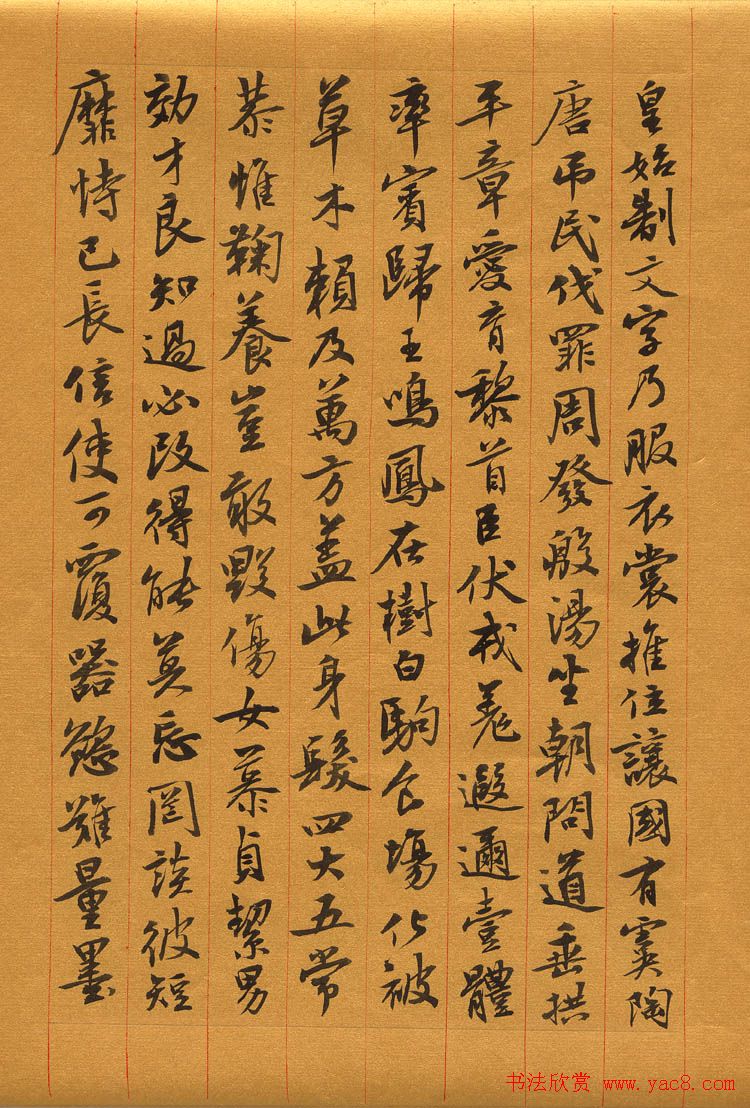 皇始制文字乃服衣裳推位讓國有虞陶
唐吊民伐罪周發殷湯坐朝問道垂拱
平章愛育黎首臣伏戎羌遐邇壹體
率賓歸王鳴鳳在樹白駒食場化被
草木賴及萬方蓋此身髮四大五常
恭惟鞠養豈敢毀傷女慕貞絜男
効才良知過必改得能莫忘罔談彼短
靡恃己長信使可覆器慾難量墨
书法欣赏 www.yac8.com